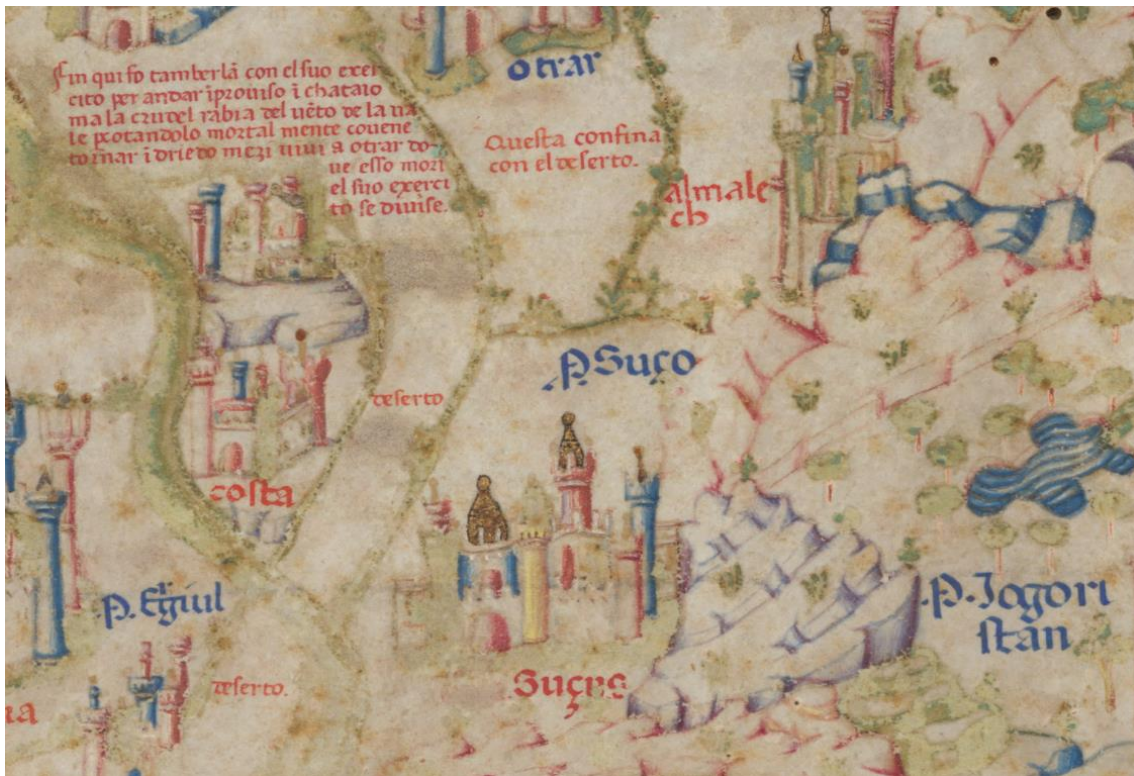 Fin qui fo tamberlã con el suo exer
cito per andar ĩprouiso ĩ chataio
ma la crudel rabia del uẽto de la ua
le pcotandolo mortal mente couene
tornar ĩ driedo mezi uiui a otrar do-
ue esso mori
el suo exerci
to se diuise.
otrar
Questa confina
con el deserto.
almale
ch
P. Suço
deserto
costa
P. Egriul
P. Iogori
stan
Suçrs
deserto.